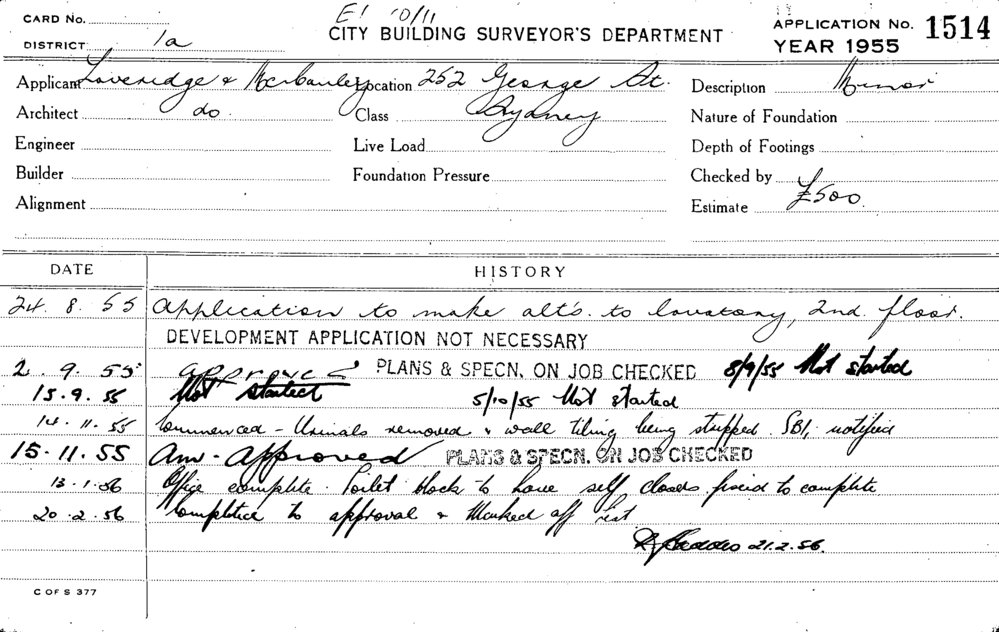 CARD No. E! 10/11
CITY BUILDING SURVEYOR'S DEPARTMENT
APPLICATION No. 1514
DISTRICT 1a
YEAR 1955
Applicant Loveridge & Location 252 George St. Description Minor
Architect do. Class Sydney Nature of Foundation
Engineer Live Load Depth of Footings
Builder Foundation Pressure Checked by
Alignment Estimate £500
DATE HISTORY
24. 8. 55 Application to make alt's. to lavatory, 2nd. floor.
DEVELOPMENT APPLICATION NOT NECESSARY
2. 9. 55 approved PLANS & SPECN. ON JOB CHECKED 8/9/55 Not started
15.9.55 Not started 5/10/55 Not started
14.11.55 Commenced - Urinals removed & wall tiling being stripped. SBI, notified
15.11.55 Am. Approved PLANS & SPECN. ON JOB CHECKED
13.1.56 Office complete. Toilet block to have self closers fixed to complete
20.2.56 Completed to approval & Marked off list
21.2.56.
C OF S 377